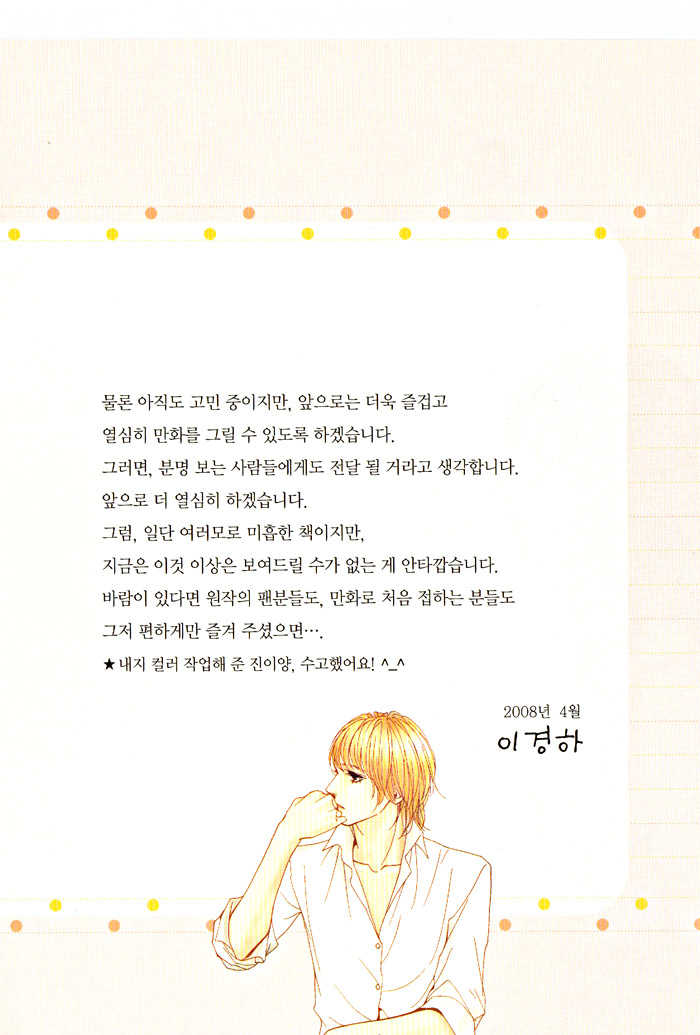 물론 아직도 고민 중이지만, 앞으로는 더욱 즐겁고
열심히 만화를 그릴 수 있도록 하겠습니다.
그러면, 분명 보는 사람들에게도 전달 될 거라고 생각합니다.
앞으로 더 열심히 하겠습니다.
그럼, 일단 여러모로 미흡한 책이지만,
지금은 이것 이상은 보여드릴 수가 없는 게 안타깝습니다.
바람이 있다면 원작의 팬분들도, 만화로 처음 접하는 분들도
그저 편하게만 즐겨 주셨으면….
★내지 컬러 작업해 준 진이양, 수고했어요! ^_^
2008년 4월
이경하